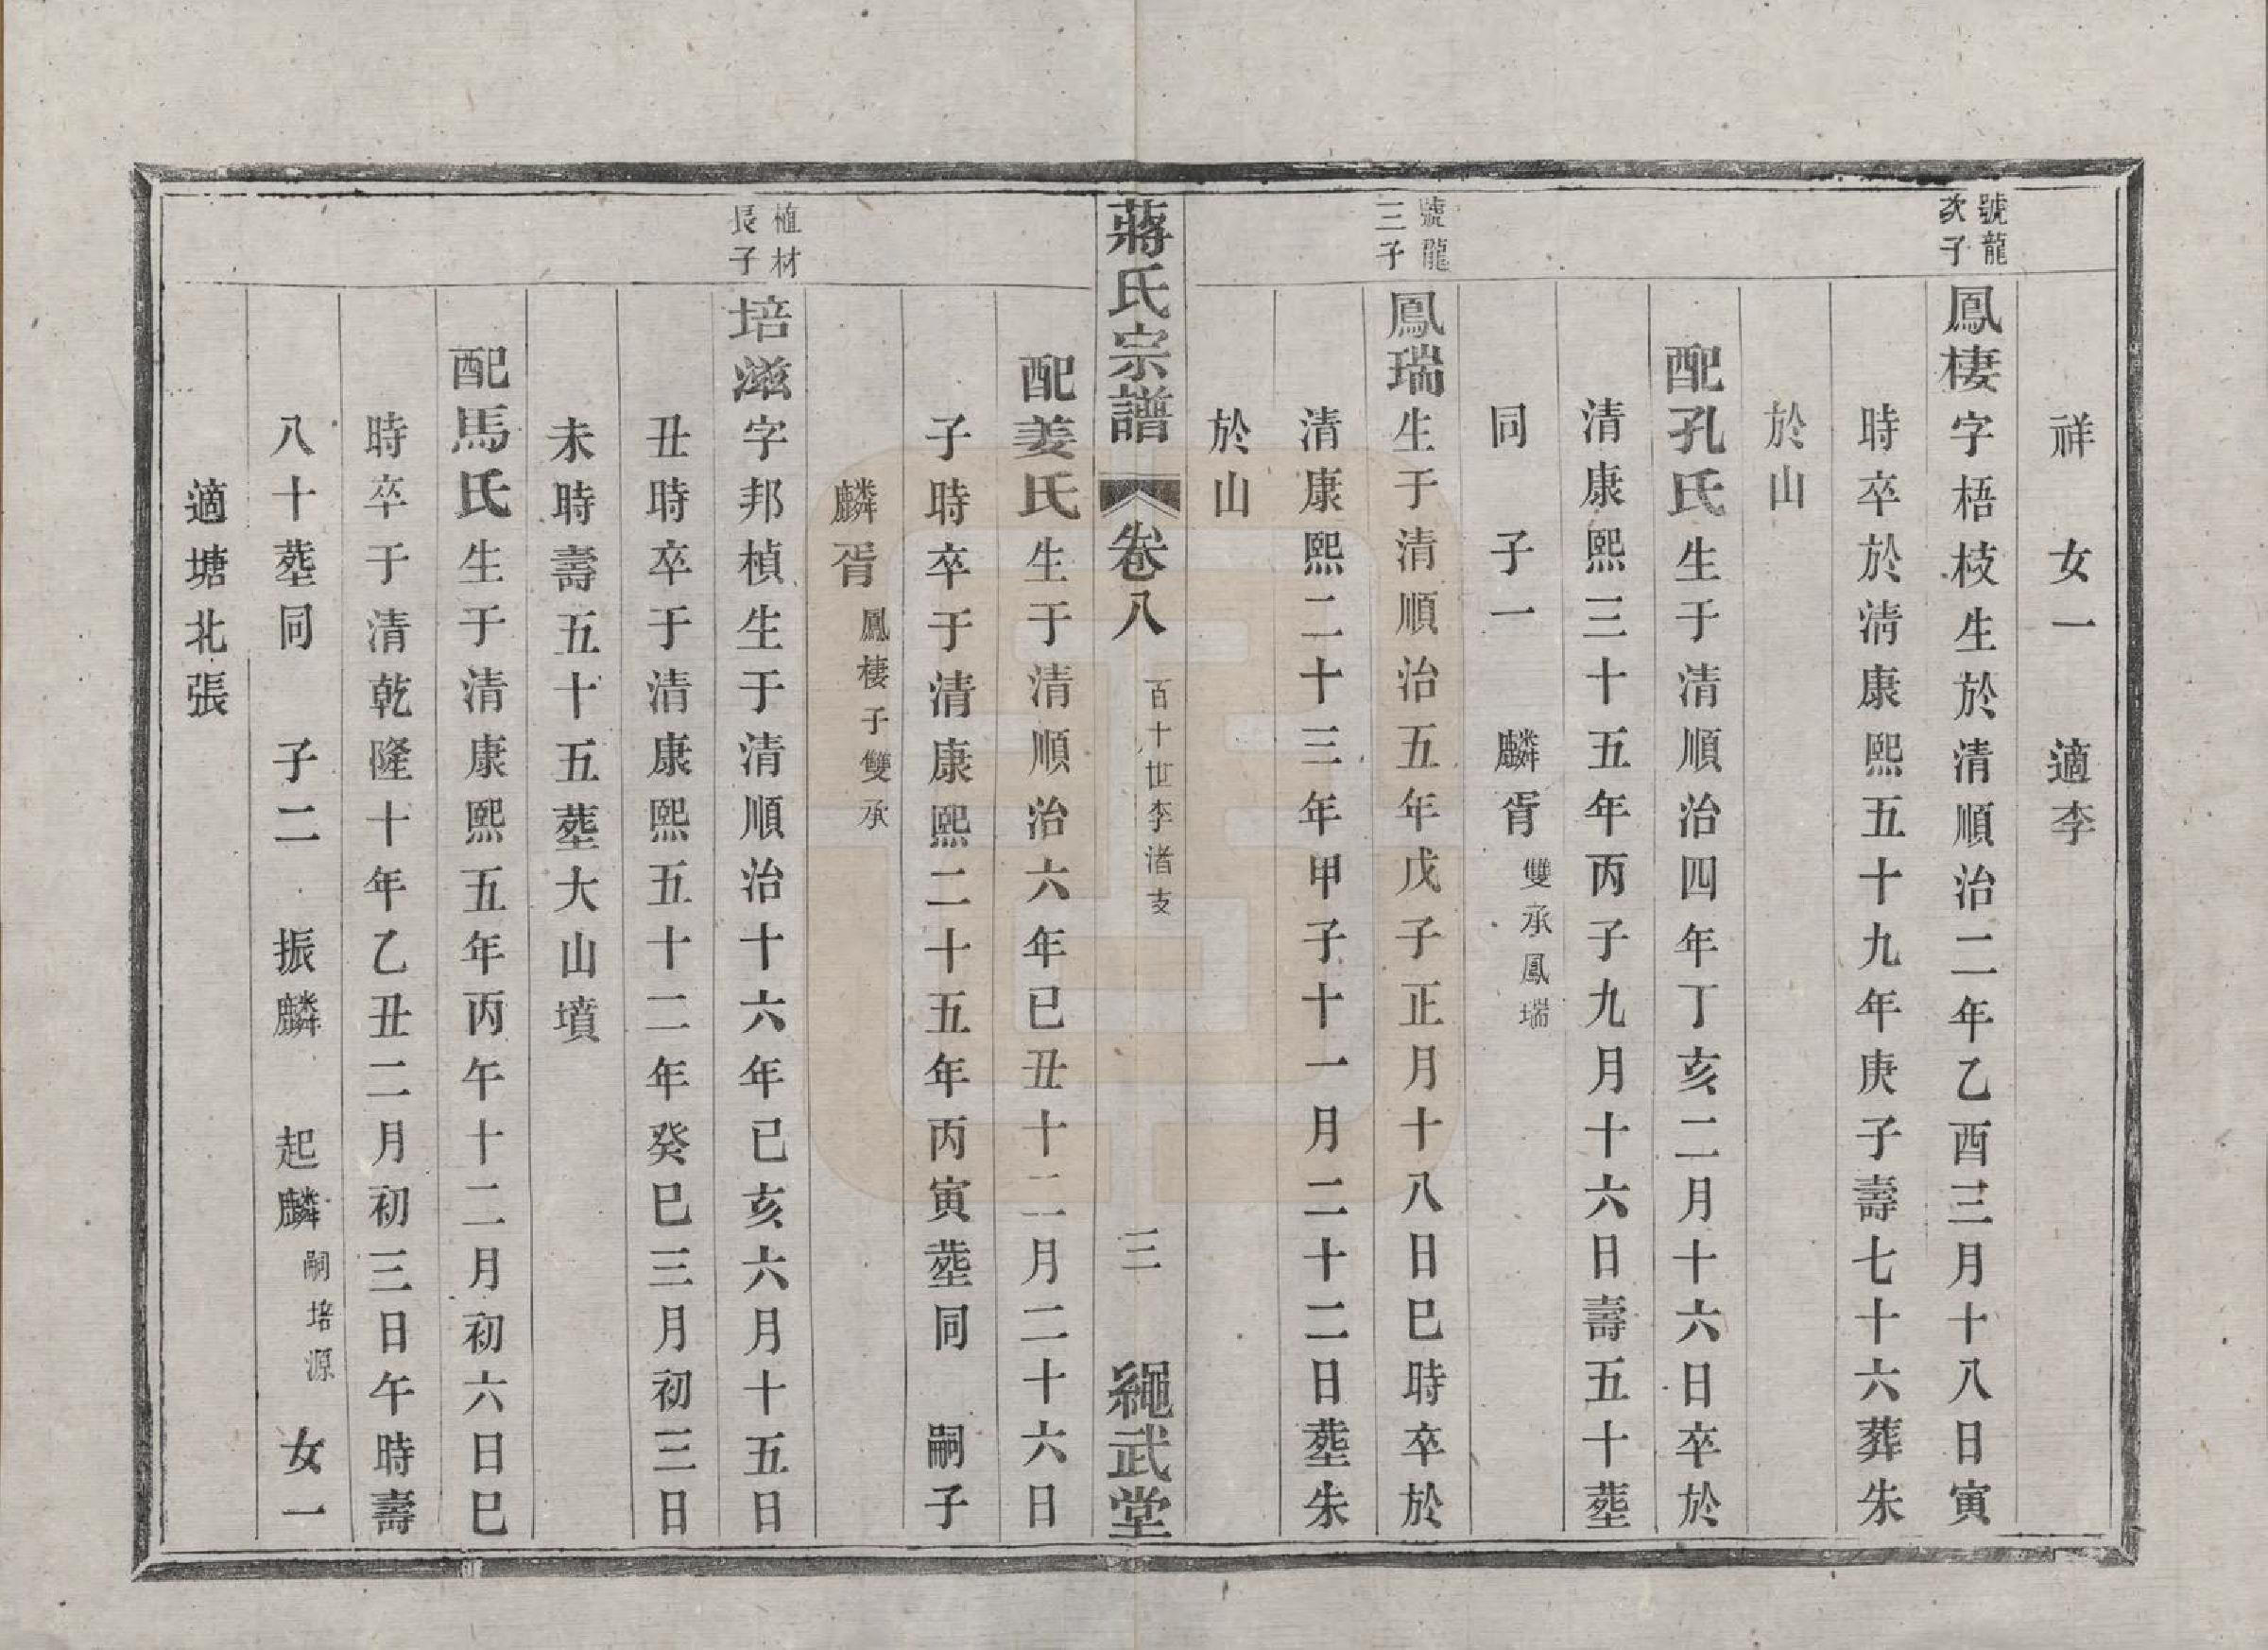 祥　女一　適李
號龍
次子
鳳棲字梧枝生於清順治二年乙酉三月十八日寅
時卒於清康熙五十九年庚子壽七十六葬朱
於山
配孔氏生于清順治四年丁亥二月十六日卒於
清康熙三十五年丙子九月十六日壽五十塟
同　子一　麟胥雙承鳳瑞
號龍
三子
鳳瑞生于清順治五年戊子正月十八日巳時卒於
清康熙二十三年甲子十一月二十二日塟朱
於山
蔣氏宗譜　卷八　百十世李渚支　三　繩武堂
配姜氏生于清順治六年已丑十二月二十六日
子時卒于清康熙二十五年丙寅塟同　嗣子
麟胥鳳棲子雙承
植材
長子
培滋字邦楨生于清順治十六年已亥六月十五日
丑時卒于清康熙五十二年癸巳三月初三日
未時壽五十五塟大山墳
配馬氏生于清康熙五年丙午十二月初六日巳
時卒于清乾隆十年乙丑二月初三日午時壽
八十塟同　子二　振麟　起麟嗣培源　女一
適塘北張